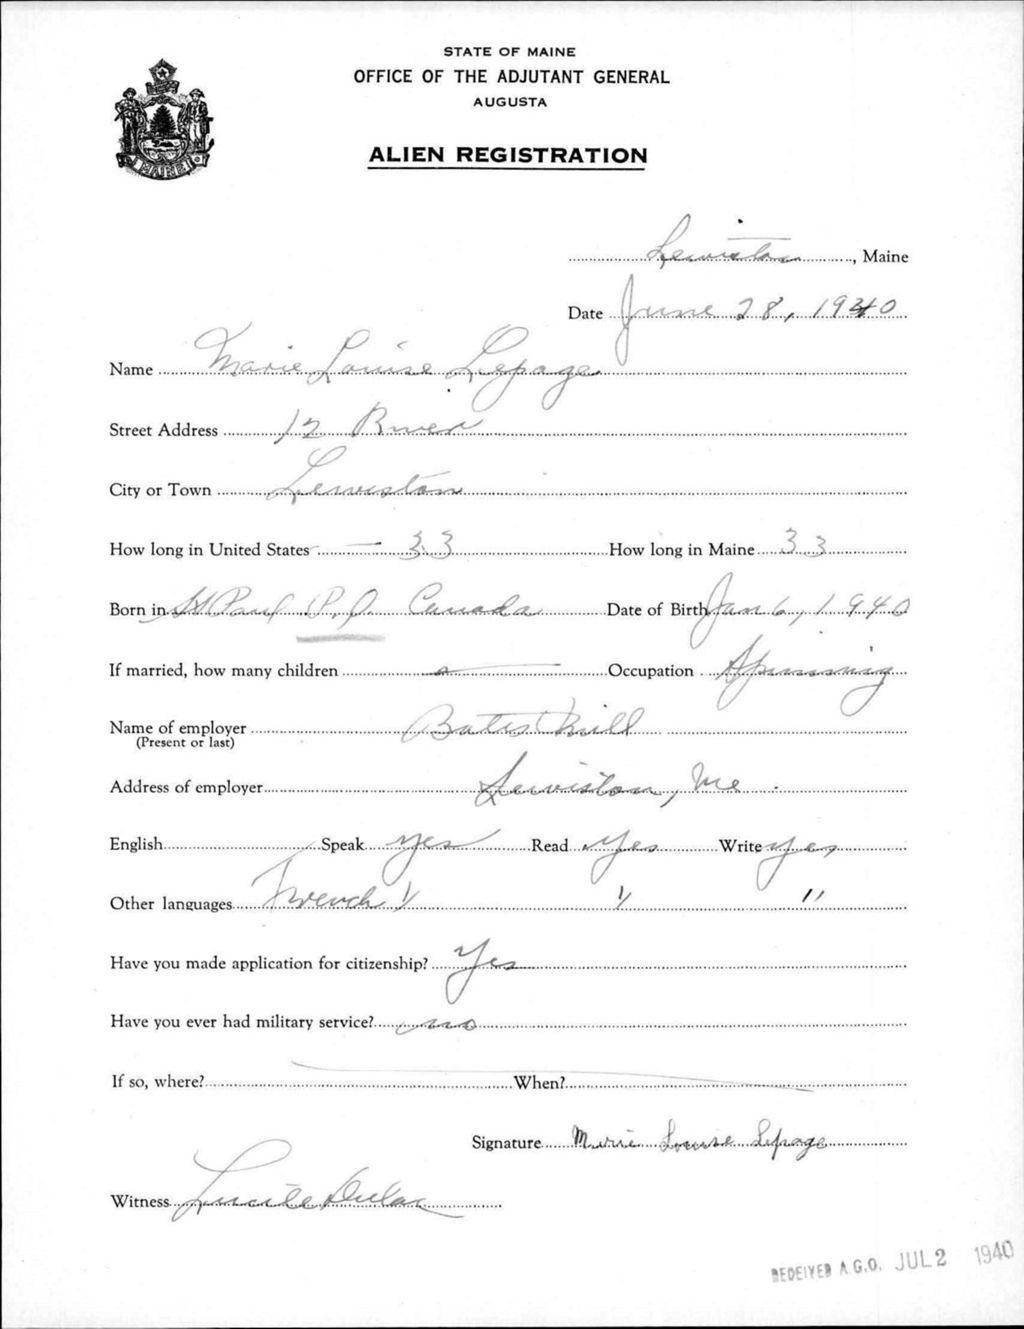 STATE OF MAINE
OFFICE OF THE ADJUTANT GENERAL
AUGUSTA
ALIEN REGISTRATION
MAINE
Lewiston, Maine
Date June 28, 1940
Name Marie Louise Lepage
Street Address 12 River
City or Town Lewiston
How long in United States - 33 How long in Maine 33
Born in St Paul P.Q Canada Date of Birth Jan 6, 1940
If married, how many children o Occupation Spinning
Name of employer Bates Mill
(Present or last)
Address of employer Lewiston, Me
English Speak yes Read Yes Write yes
Other languages French " " "
Have you made application for citizenship? Yes
Have you ever had military service? no
If so, where? When?
Signature Marie Louise Lepage
Witness Lucile Dulac
RECEIVED A.G.O. JUL 2 1940